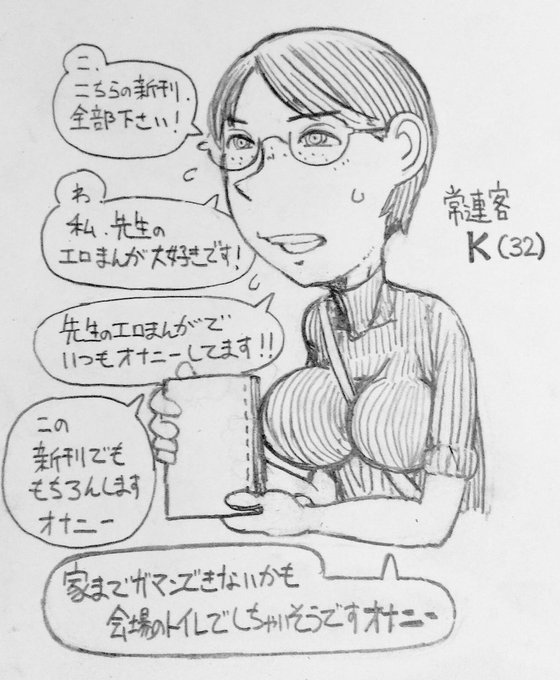 こ、
こちらの新刊、
全部下さい！
わ
私、先生の
エロまんが大好きです！
先生のエロまんがで
いつもオナニーしてます！！
この
新刊でも
もちろんします
オナニー
家までガマンできないかも
会場のトイレでしちゃいそうですオナニー
常連客
K（32）